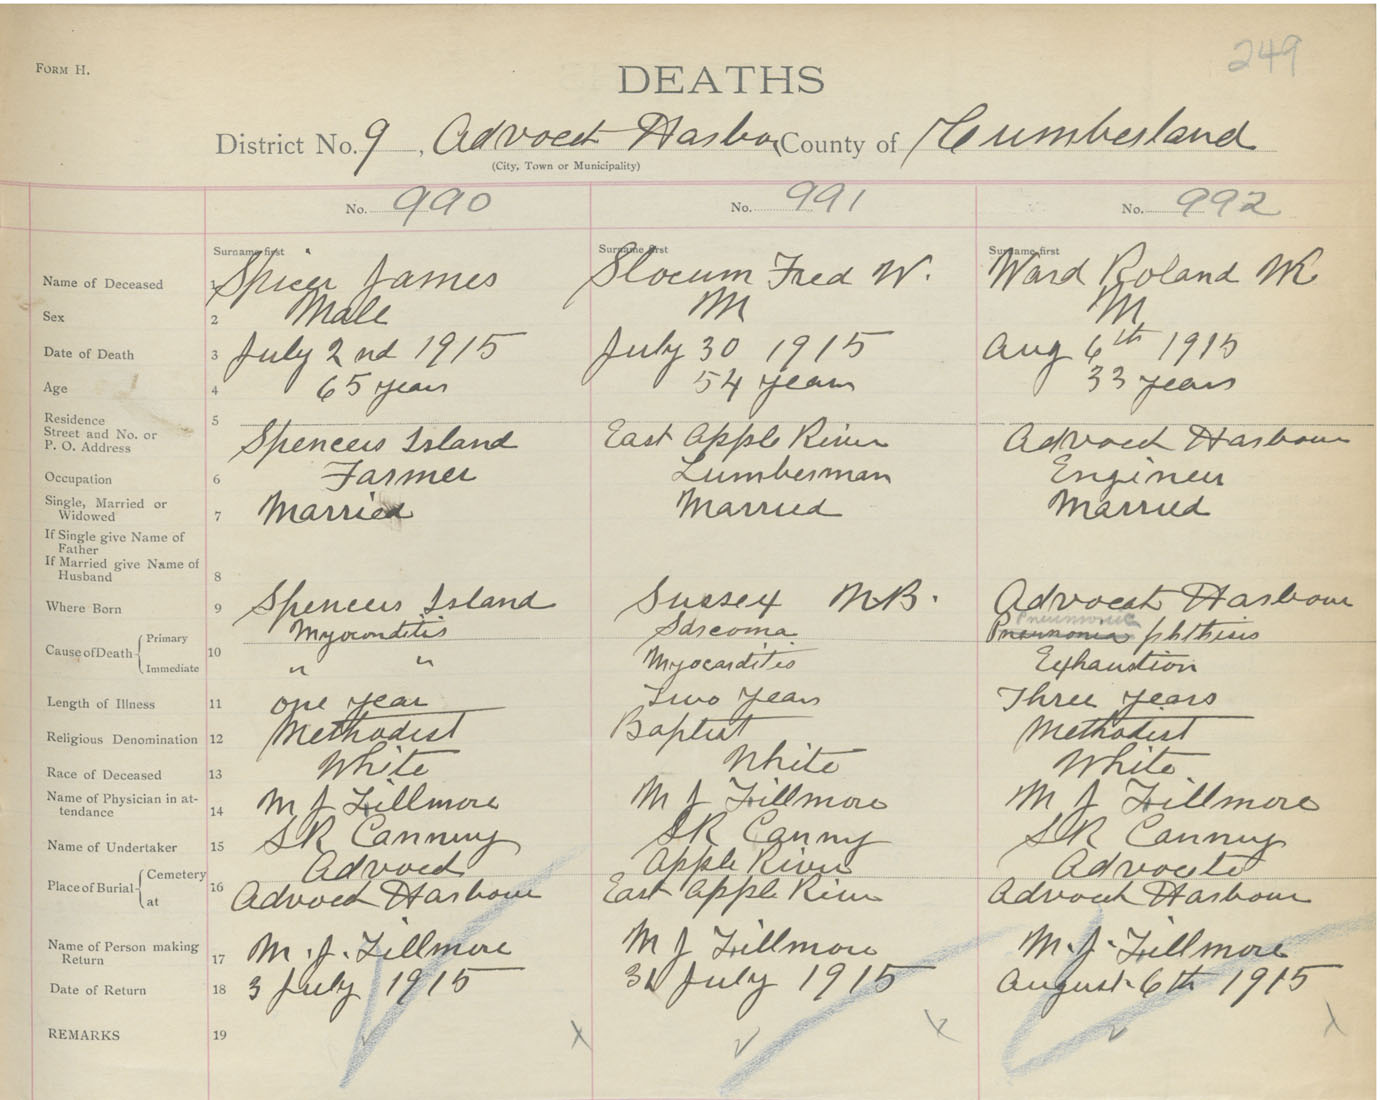 249
FORM H.
DEATHS
District No. 9, Advocet Harbor County of Cumberland
(City, Town or Municipality)
No. 990 No. 991 No. 992
Surname first Surname first Surname first
Name of Deceased 1 Spicer James Slocum Fred W. Ward Roland W
Sex 2 Male M M
Date of Death 3 July 2nd 1915 July 30 1915 Aug 6th 1915
Age 4 65 years 54 years 33 years
Residence 5
Street and No. or
P. O. Address Spencers Island East Apple River Advocet Harbour
Occupation 6 Farmer Lumberman Enginer
Single, Married or
Widowed 7 Married Married Married
If Single give Name of
Father
If Married give Name of
Husband 8
Where Born 9 Spencers Island Sussex N.B. Advocet Harbour
Pneumonic
Cause of Death Primary Myoconditis Sarcoma Pneumonia phthisis
10
Immediate " " Myocarditis Exhaustion
Length of Illness 11 one year Two years Three years
Religious Denomination 12 Methodist Baptist Methodist
Race of Deceased 13 White White White
Name of Physician in at-
tendance 14 M J Fillmore M J Fillmore M J Fillmore
Name of Undertaker 15 S R Canning S R Canny S R Canning
Place of Burial Cemetery 16 Advocet Apple River Advocate
at Advocet Harbour East Apple River Advocet Harbour
Name of Person making
Return 17 M. J. Fillmore M J Fillmore M. J. Fillmore
Date of Return 18 3 July 1915 31 July 1915 August 6th 1915
REMARKS 19